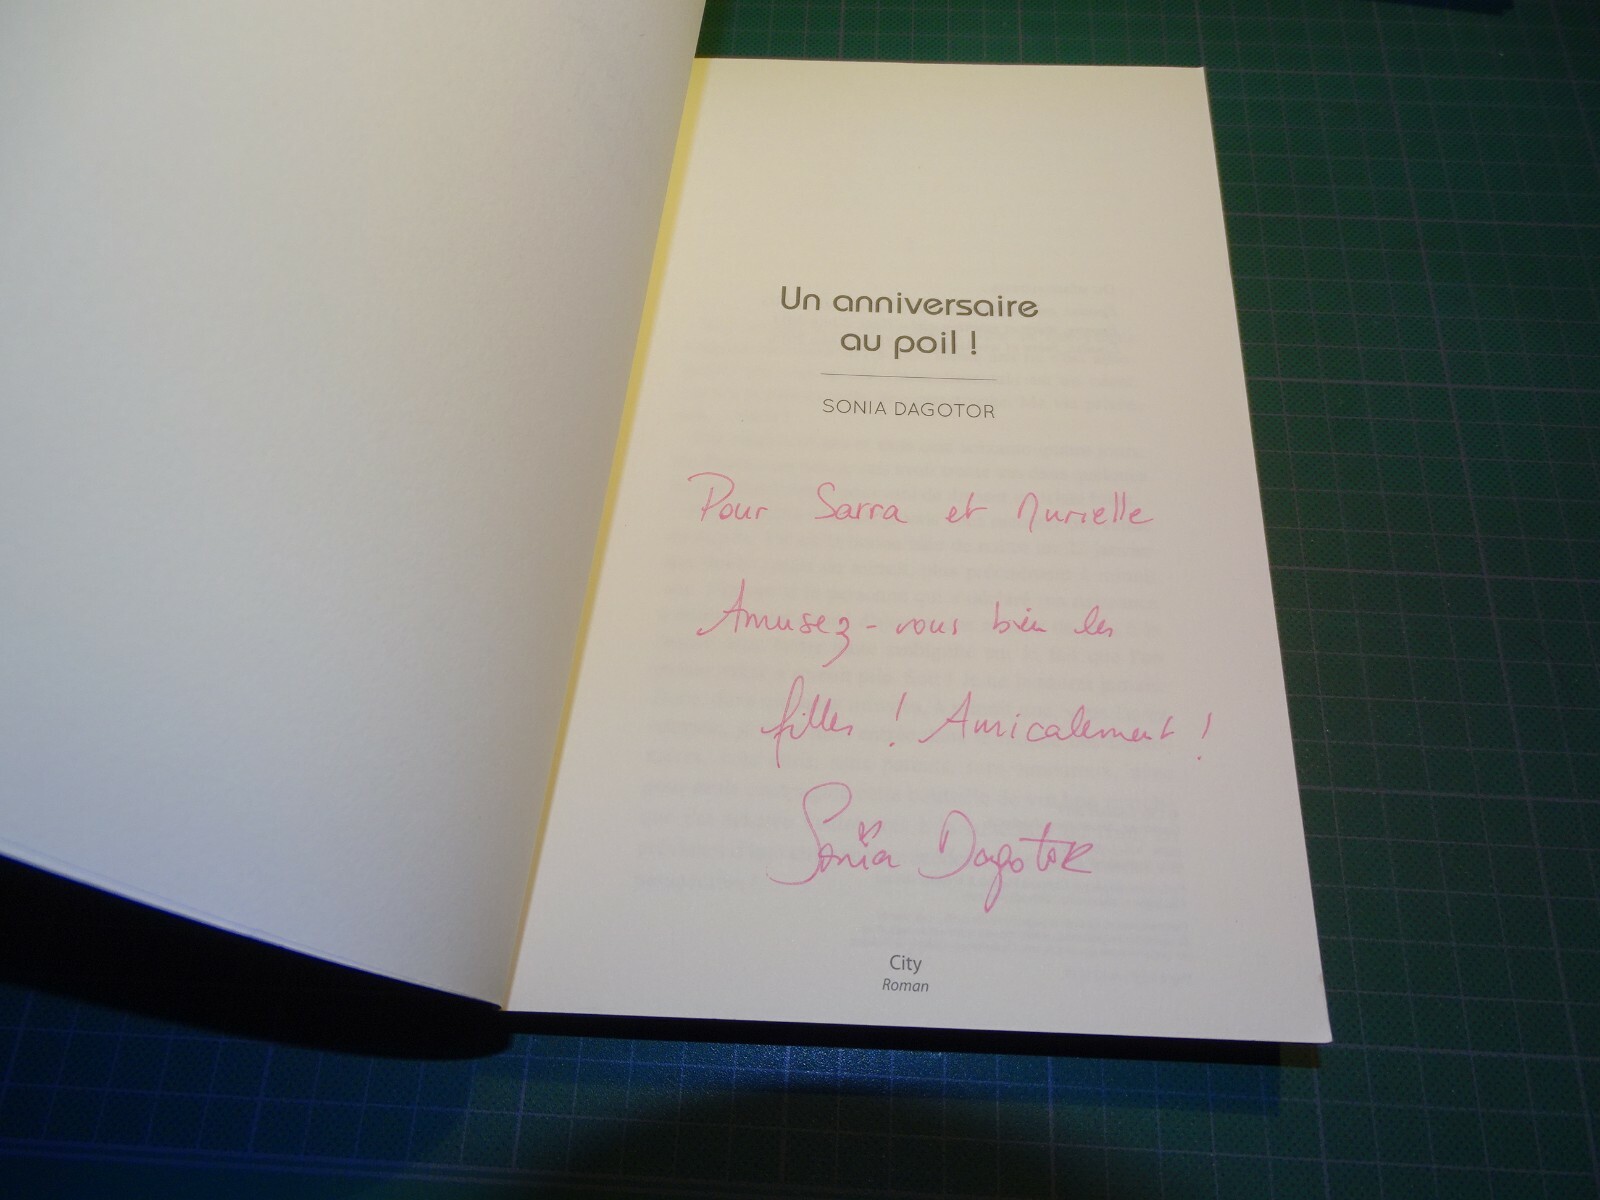 Un anniversaire
au poil !
SONIA DAGOTOR
Pour Sarra et Murielle
Amusez-vous bien les
filles ! Amicalement !
Sonia Dagotor
City
Roman